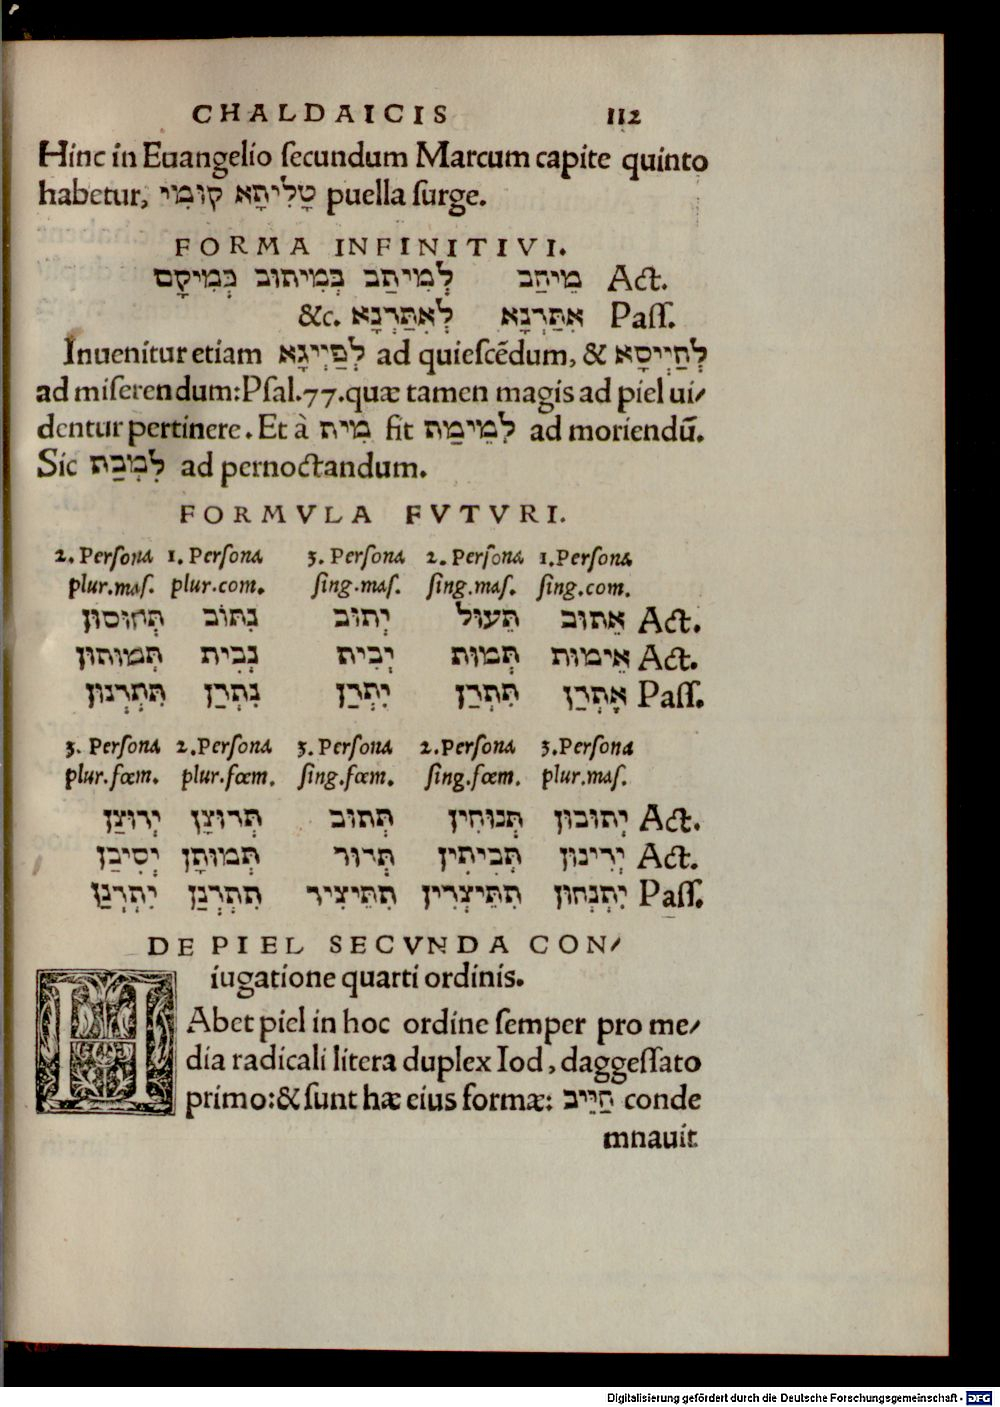 CHALDAICIS 112
Hinc in Euangelio secundum Marcum capite quinto
habetur, טָלִיתָא קוּמִי puella surge.
FORMA INFINITIVI.
מֵיחַב לְמֵיתַב בְּמִיתוּב כְּמִיקָם Act.
אִתַּרְנָא לְאִתַּרְנָא &c. Pass.
Inuenitur etiam לְפַיְיגָא ad quiescēdum, & לְחַיְיסָא
ad miserendum: Psal.77. quæ tamen magis ad piel ui/
dentur pertinere. Et à מִית fit לְמֵימַת ad moriendū.
Sic לִמְבַת ad pernoctandum.
FORMVLA FVTVRI.
2. Persona 1. Persona 3. Persona 2. Persona 1. Persona
plur.mas. plur.com. sing.mas. sing.mas. sing.com.
אֵתוּב תֵּעוּל יְתוּב נְתוֹב תְּחוּסוּן Act.
אֵימוּת תְּמוּת יְבִית נְבִית תְּמוּתוּן Act.
אֶתְּרַן תִּתְרַן יִתְּרַן נִתְּרַן תִּתְּרְנוּן Pass.
3. Persona 2. Persona 3. Persona 2. Persona 3. Persona
plur.fœm. plur.fœm. sing.fœm. sing.fœm. plur.mas.
יְתוּבוּן תְּנוּחִין תְּתוּב תְּרוּצָן יְרוּצַן Act.
יְרִינוּן תְּבִיתִין תְּרוּר תְּמוּתָן יְסִיבַן Act.
יִתְּנְחוּן תִּתֵּיצְרִין תִּתֵּיצִיר תִּתְּרְנַן יִתְּרְנַן Pass.
DE PIEL SECVNDA CON/
iugatione quarti ordinis.
HAbet piel in hoc ordine semper pro me/
dia radicali litera duplex Iod, daggessato
primo: & sunt hæ eius formæ: חַיֵּיב conde
mnauit
Digitalisierung gefördert durch die Deutsche Forschungsgemeinschaft - DFG